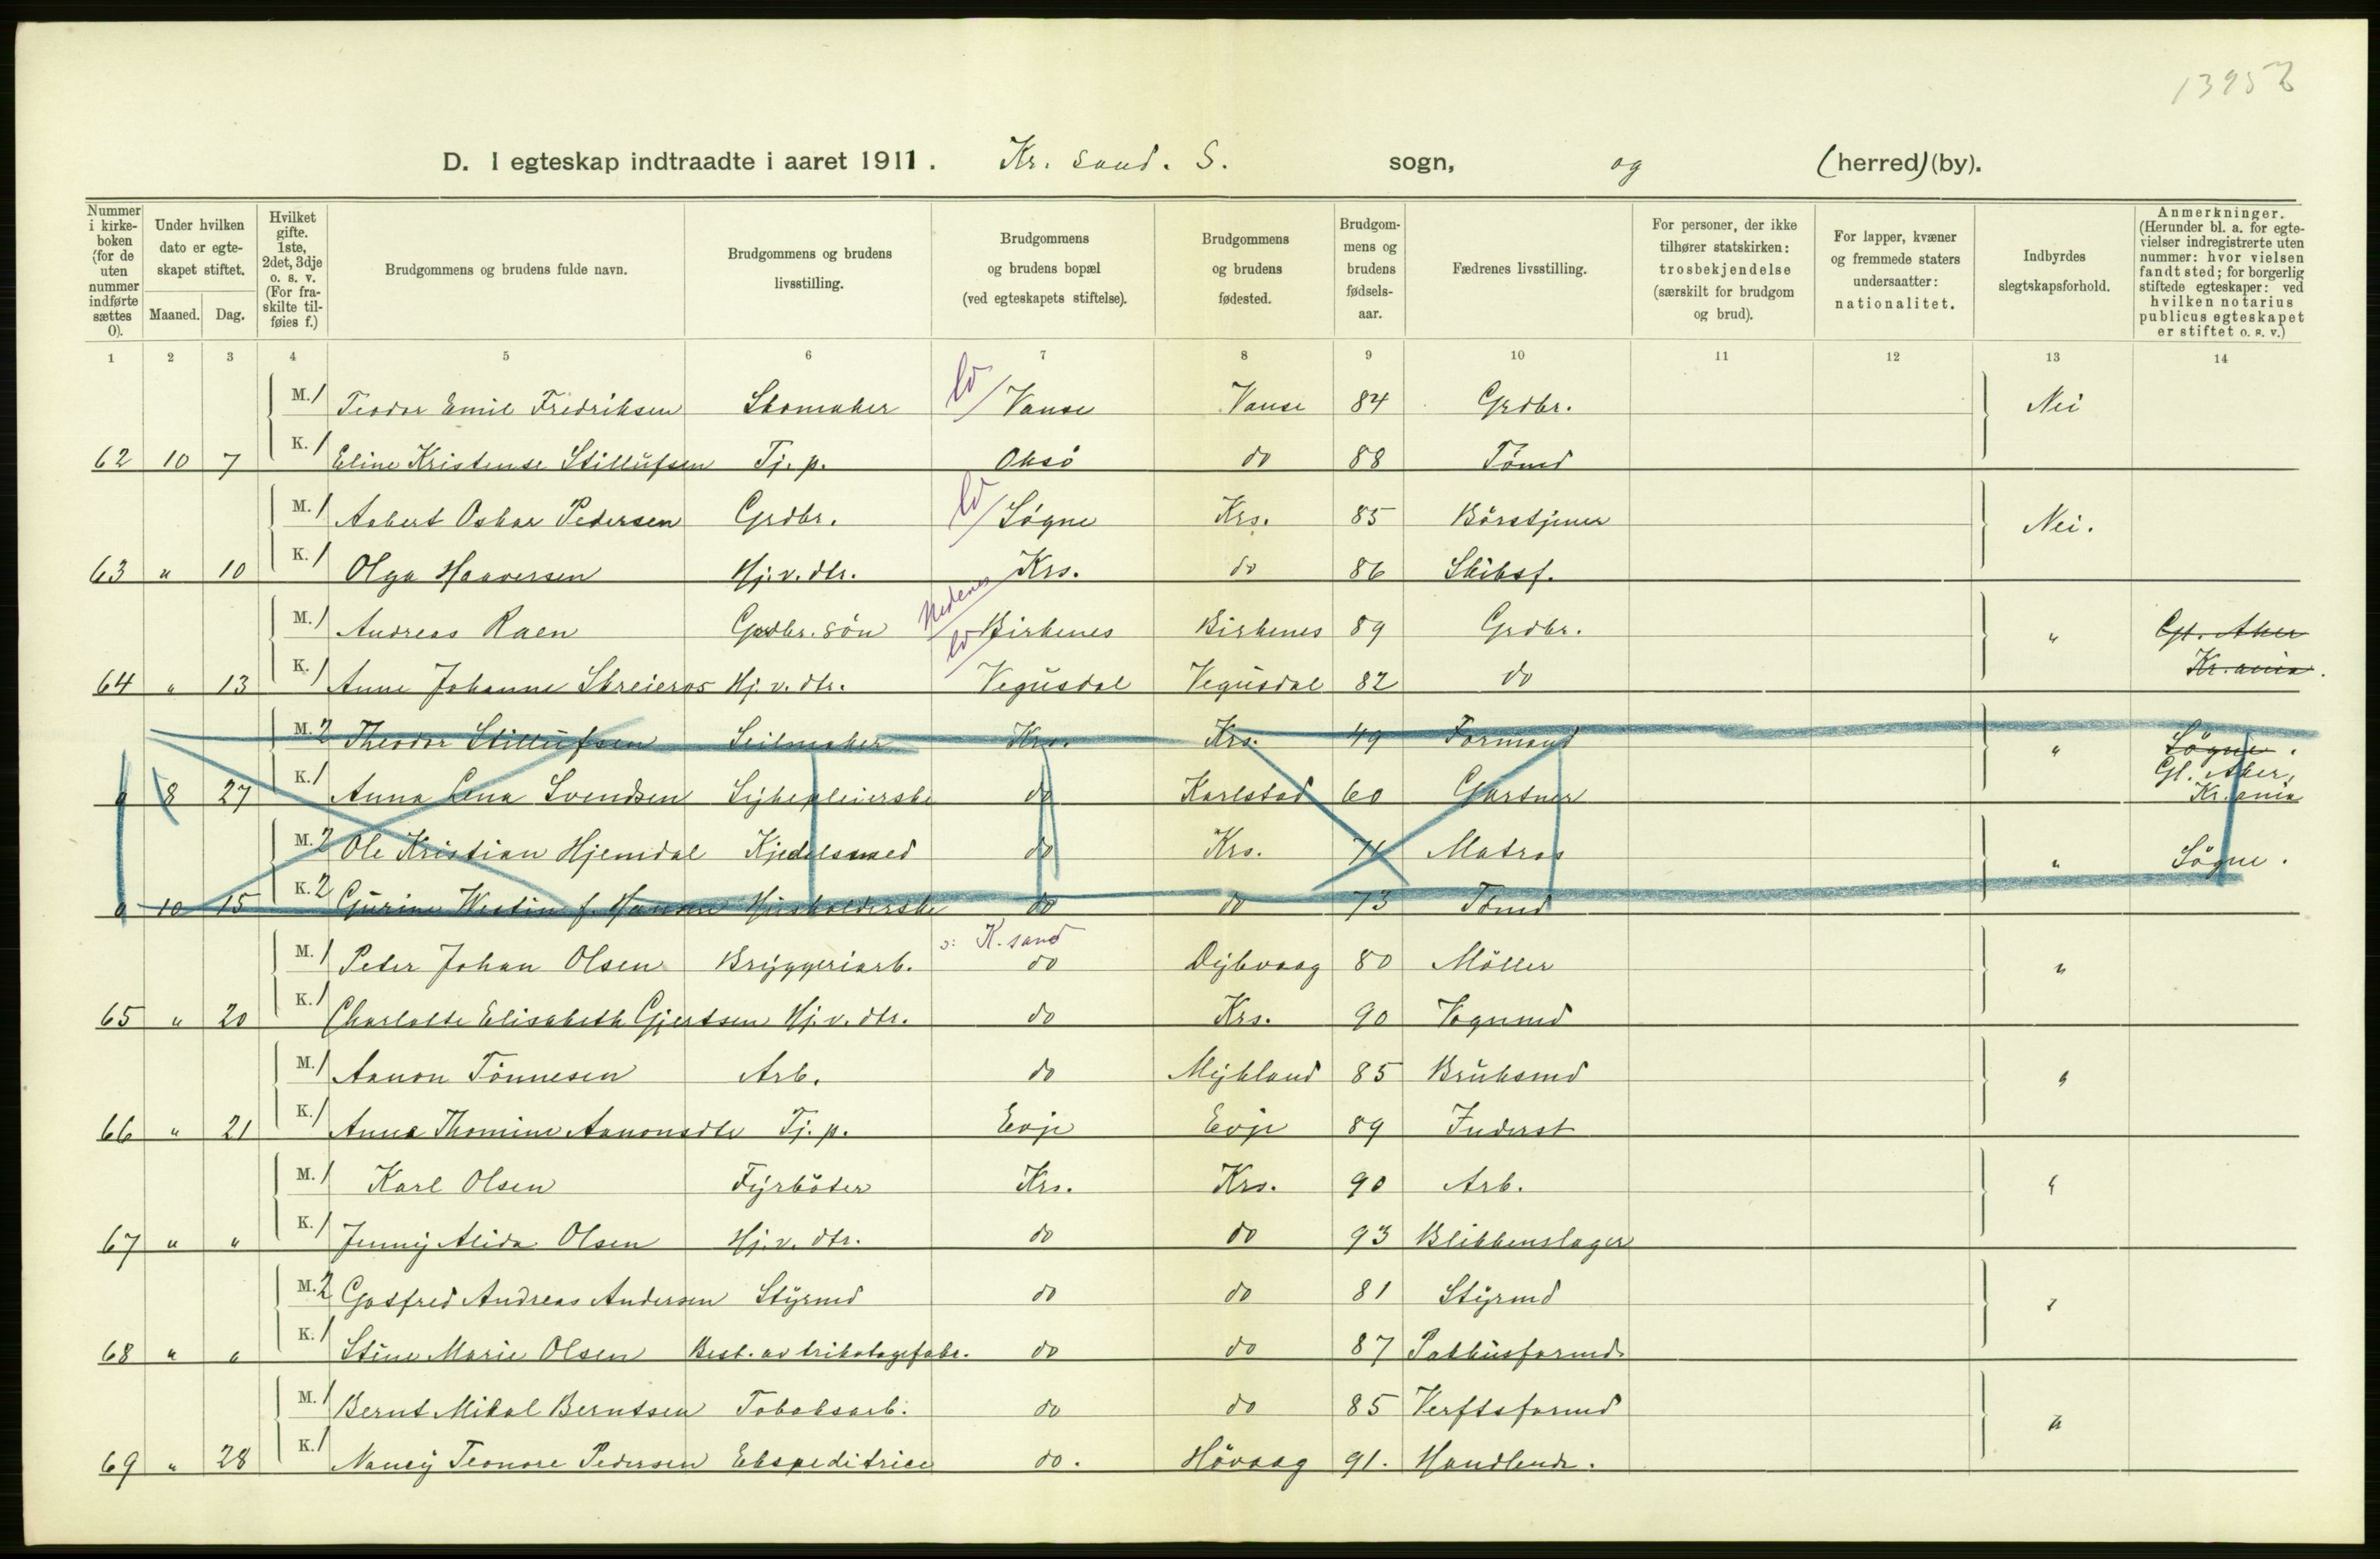 13953
D. I egteskap indtraadte i aaret 1911. Kr. sand. S. sogn, og (herred) (by).
Nummer i kirkeboken (for de uten nummer indførte sættes 0). Under hvilken dato er egteskapet stiftet. Maaned. Dag. Hvilket gifte. 1ste, 2det, 3dje o. s. v. (For fraskilte tilføies f.) Brudgommens og brudens fulde navn. Brudgommens og brudens livsstilling. Brudgommens og brudens bopæl (ved egteskapets stiftelse). Brudgommens og brudens fødested. Brudgommens og brudens fødselsaar. Fædrenes livsstilling. For personer, der ikke tilhører statskirken: trosbekjendelse (særskilt for brudgom og brud). For lapper, kvæner og fremmede staters undersaatter: nationalitet. Indbyrdes slegtskapsforhold. Anmerkninger. (Herunder bl. a. for egtevielser indregistrerte uten nummer: hvor vielsen fandt sted; for borgerlig stiftede egteskaper: ved hvilken notarius publicus egteskapet er stiftet o. s. v.)
1 2 3 4 5 6 7 8 9 10 11 12 13 14
M. 1 Teodor Emil Fredriksen Skomaker Vanse Vanse 84 Grdbr. Nei
62 10 7 K. 1 Eline Kristense Stillufsen Tj. p. Oksö do 88 Tömd
M. 1 Aabert Oskar Pedersen Grdbr. Sögne Krs. 85 Börstjener Nei.
63 " 10 K. 1 Olga Haaversen Hj. v. dtr. Krs. do 86 Skibsf.
M. 1 Andreas Raen Grdbr. sön Nedenes Birkenes Birkenes 89 Grdbr. " Gl. Aker
64 " 13 K. 1 Anne Johanne Skreieros Hj. v. dtr. Vegusdal Vegusdal 82 do Kr.ania.
M. 2 Theodor Stillufsen Seilmaker Krs. Krs. 49 Formand " Sögne.
0 8 27 K. 1 Anna Lena Svendsen Sykepleierske do Karlstad 60 Gartner Gl. Aker, Kr.ania
M. 2 Ole Kristian Hjemdal Kjedelsmed do Krs. 71 Matros " Sögne.
0 10 15 K. 2 Gurine Westin f. Hansen Husholderske do do 73 Tömd
M. 1 Peter Johan Olsen Bryggeriarb. ɔ: K. sand do Dybvaag 80 Möller "
65 " 20 K. 1 Charlotte Elisabeth Gjertsen Hj. v. dtr. do Krs. 90 Vognmd
M. 1 Aanon Tönnesen Arb. do Mykland 85 Bruksmd "
66 " 21 K. 1 Anna Thomine Aanonsdtr Tj. p. Evje Evje 89 Inderst
M. 1 Karl Olsen Fyrböter Krs. Krs. 90 Arb. "
67 " " K. 1 Jenny Alida Olsen Hj. v. dtr. do do 93 Blikkenslager
M. 2 Gotfred Andreas Andersen Styrmd do do 81 Styrmd "
68 " " K. 1 Stine Marie Olsen Best. av trikotagefabr. do do 87 Pakhusformd.
M. 1 Bernt Mikal Berntsen Tobaksarb. do do 85 Verftsformd "
69 " 28 K. 1 Nancy Teonore Pedersen Ekspeditrice do. Hövaag 91. Handlende.